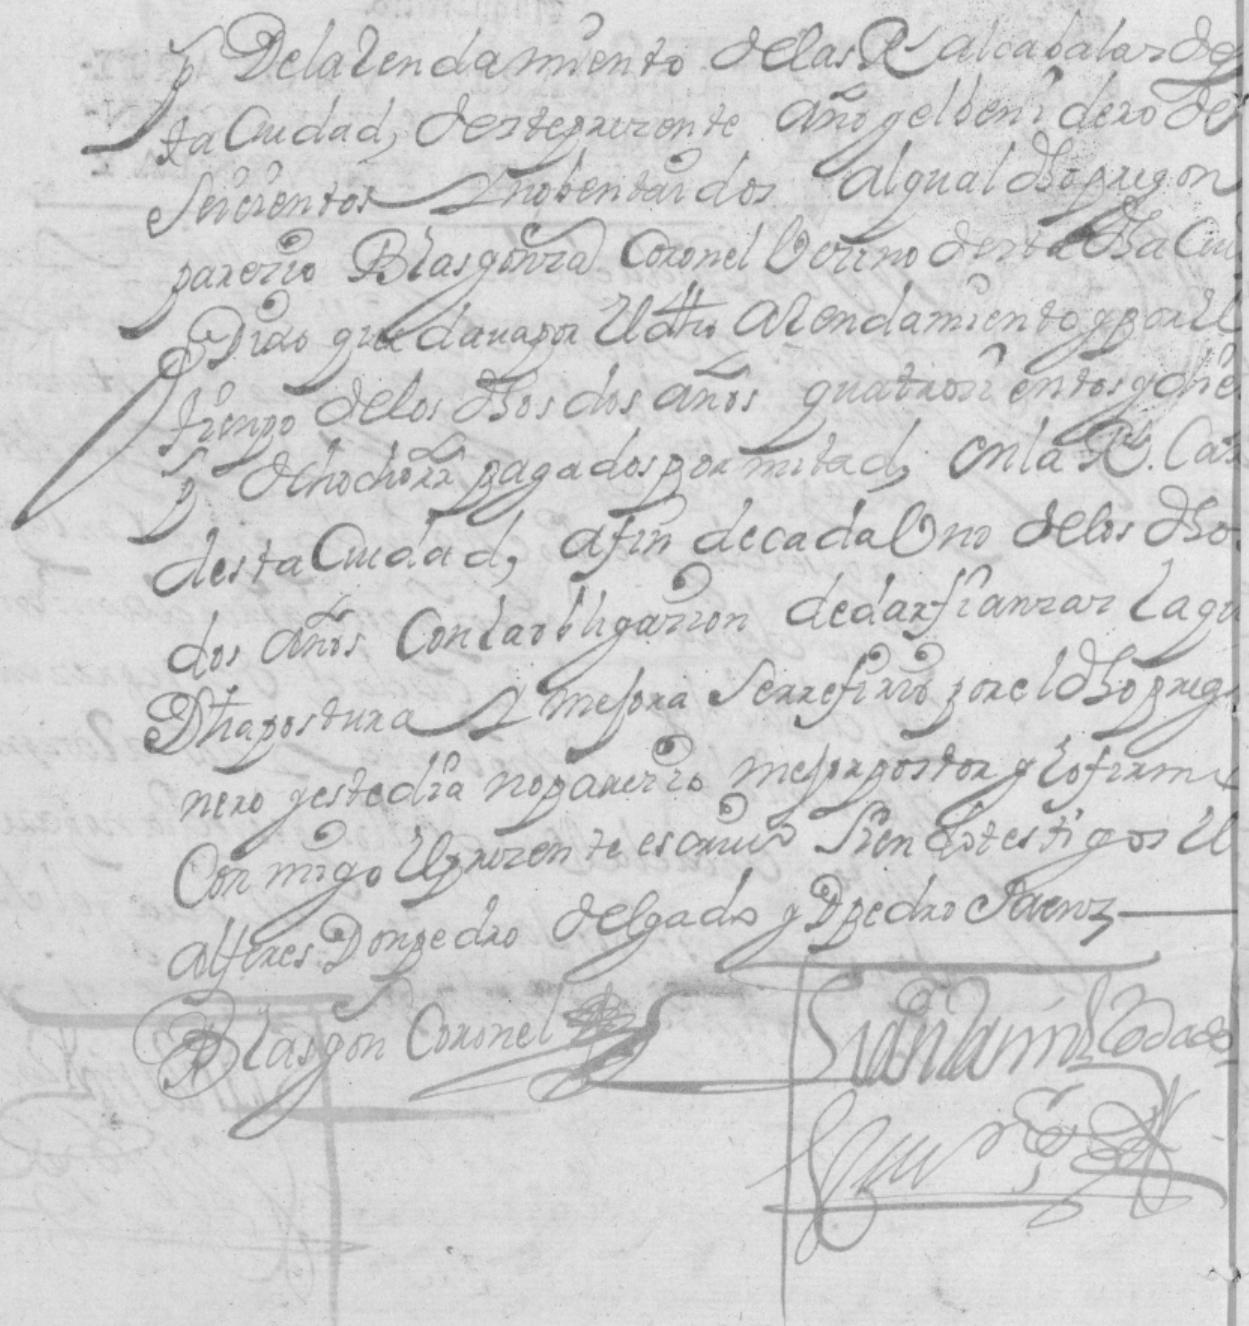 p Delarendamiento delas Rs alcabalas des
ta Ciudad, deste presente año y el benidero de
seiscientos y nobenta i dos al qual dho pregon
parecio Blas gonza Coronel Vecino desta dha Ciu
Dixo que daua por El dho arendamiento y por El
tienpo delos dhos dos años quatrocientos y dies
y ocho pagados por mitad, en la Rl. Cax
desta Ciudad, a fin de cada Uno delos dho
dos años Con la obligacion de dar fianzas la qu
Dha postura y mejora se rrefirio por el dho prego
nero y este dia no parecio mejor postor y lo firm
Conmigo El presente escriuo siendo testigos El
alferes Don pedro delgado y D pedro Saenz
Blas gon Coronel